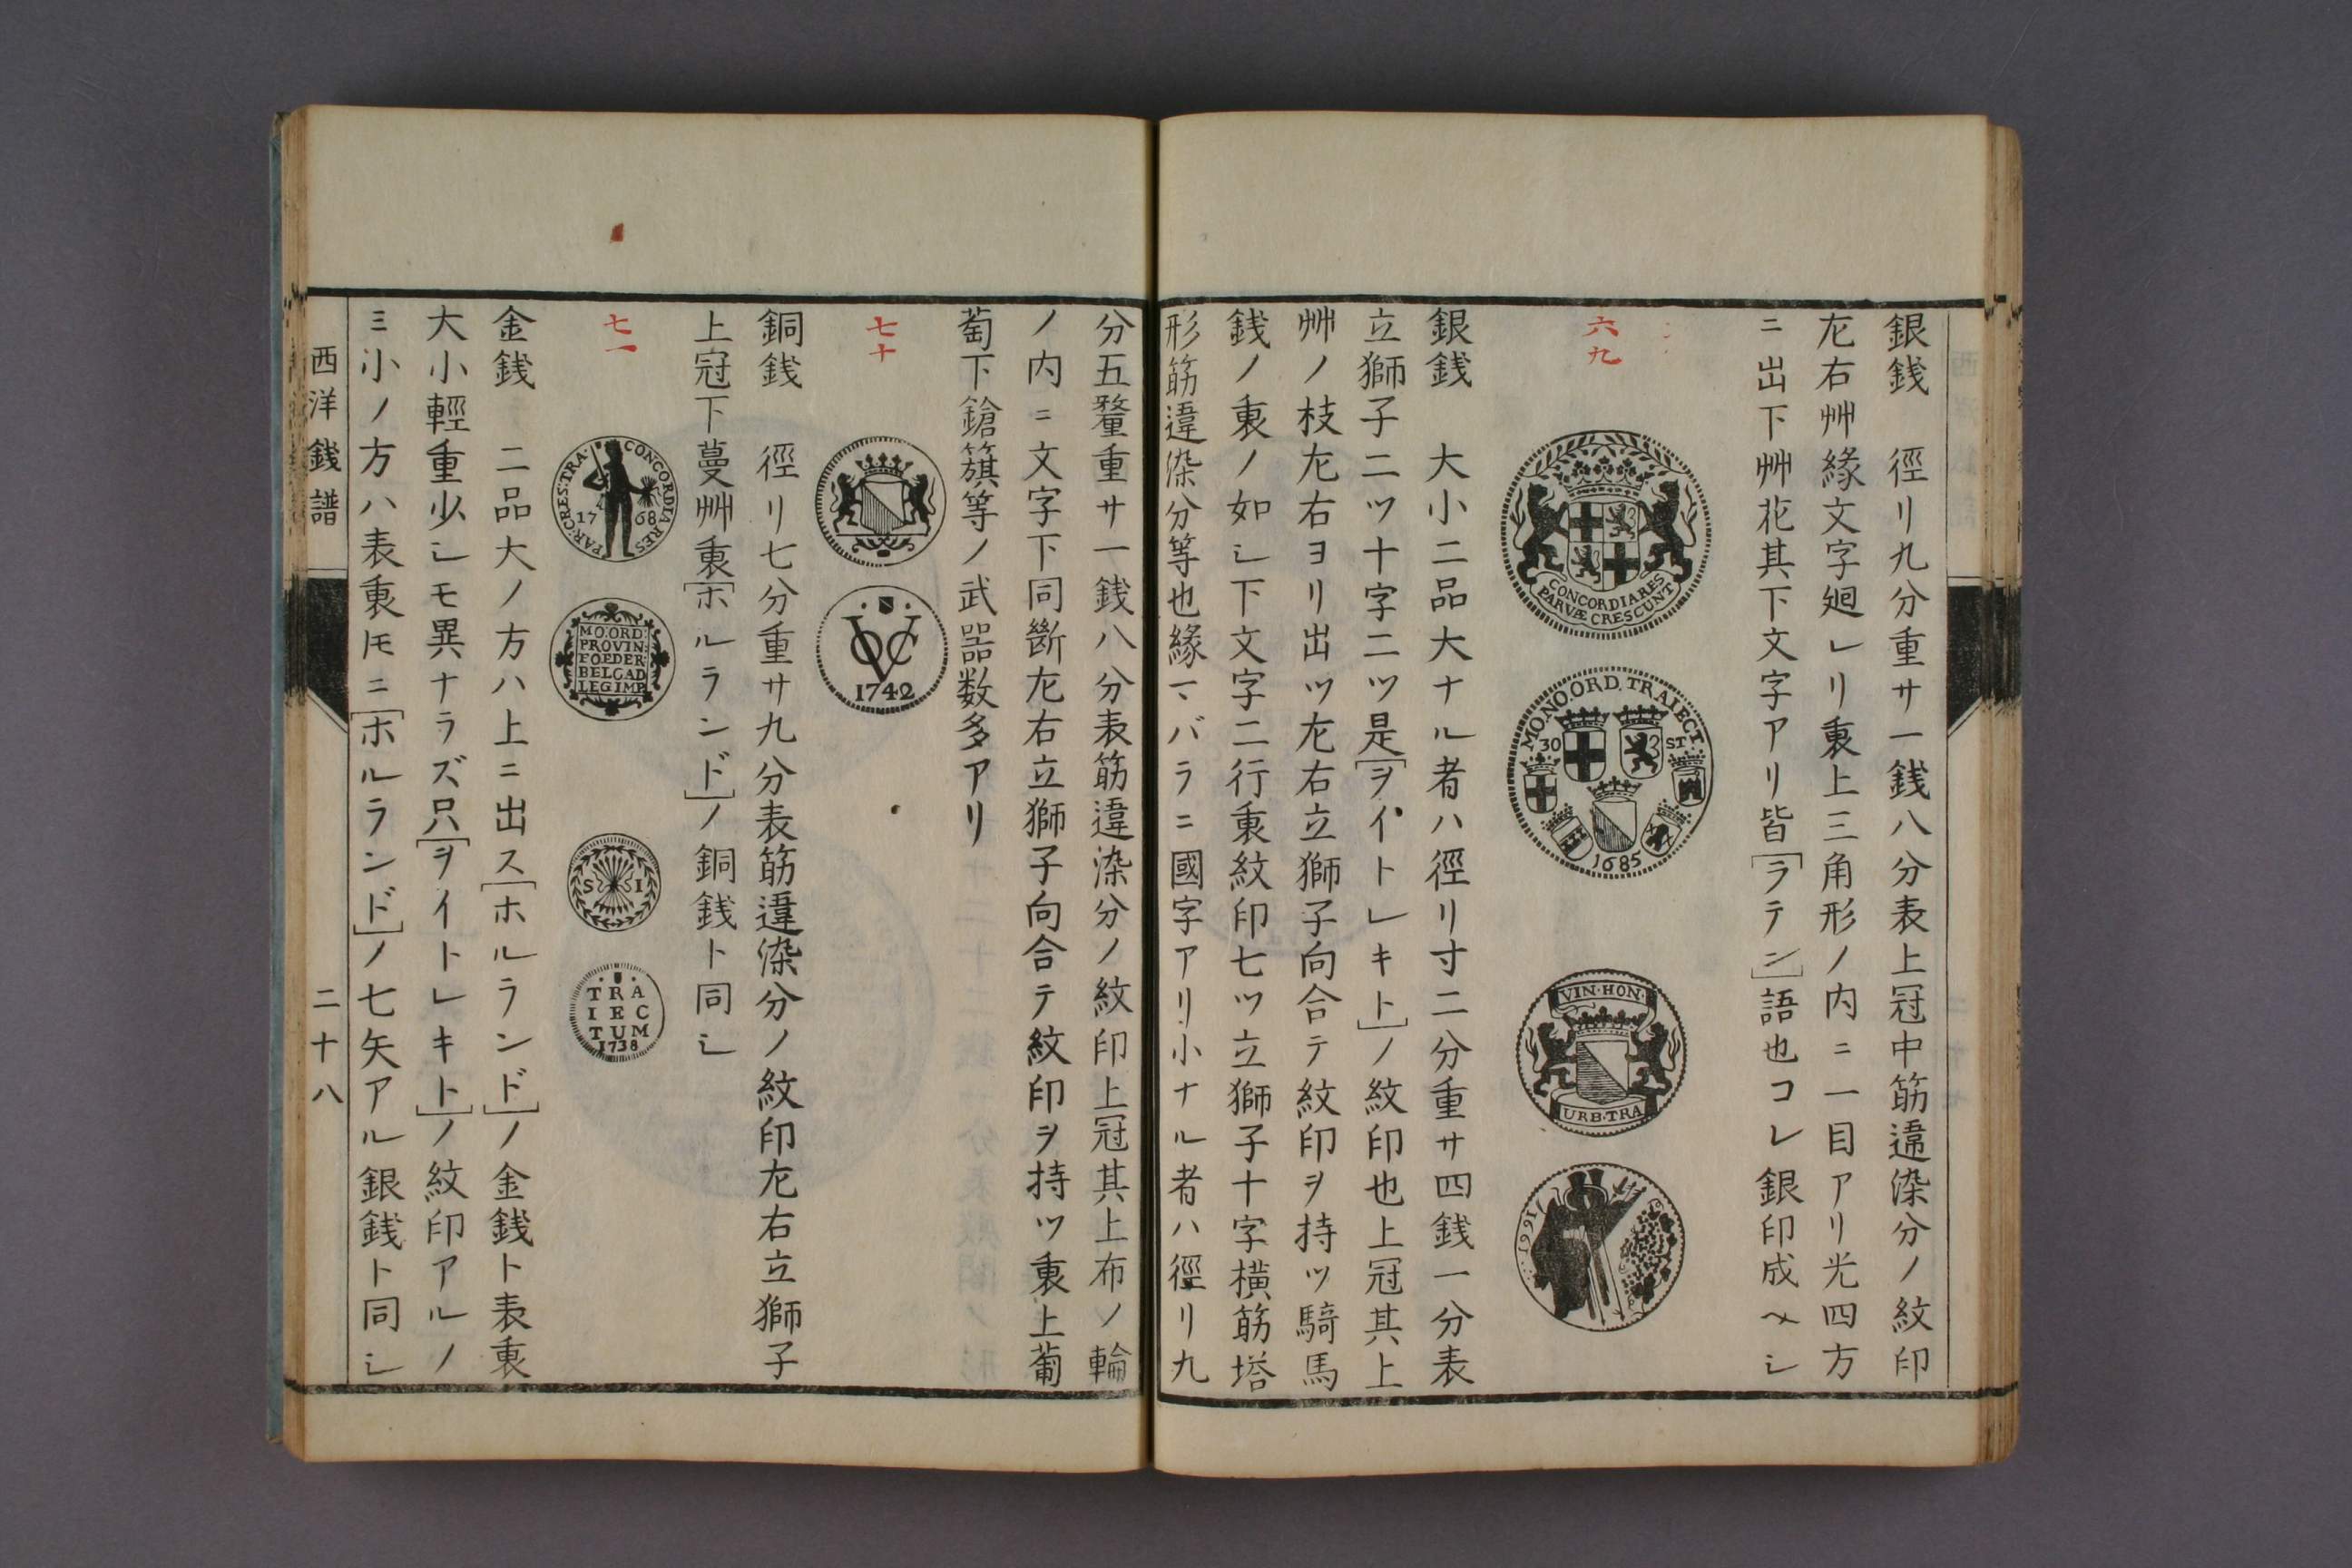 銀銭　徑リ九分重サ一銭八分表上冠中筋違染分ノ紋印
左右艸緣文字廻レリ裏上三角形ノ内ニ一目アリ光四方
ニ出下艸花其下文字アリ皆[ラテン]語也コレ銀印成ヘシ
六九
CONCORDIA RES
PARVÆ CRESCUNT
MO.NO.ORD.TRAIECT.
30 ST
1685
VIN·HON·
URB·TRA
1661
銀銭　大小二品大ナル者ハ徑リ寸二分重サ四銭一分表
立獅子二ツ十字二ツ是[ヲイトレキト]ノ紋印也上冠其上
艸ノ枝左右ヨリ出ツ左右立獅子向合テ紋印ヲ持ツ騎馬
銭ノ裏ノ如シ下文字二行裏紋印七ツ立獅子十字横筋塔
形筋違染分等也緣マバラニ國字アリ小ナル者ハ徑リ九
分五釐重サ一銭八分表筋違染分ノ紋印上冠其上布ノ輪
ノ内ニ文字下同斷左右立獅子向合テ紋印ヲ持ツ裏上葡
萄下鎗籏等ノ武噐数多アリ
七十
VOC
1742
銅銭　徑リ七分重サ九分表筋違染分ノ紋印左右立獅子
上冠下蔓艸裏[ホルランド]ノ銅銭ト同シ
七一
CONCORDIA RES
PAR:CRES:TRA·
17 68
MO:ORD:
PROVIN:
FOEDER
BELGAD
LEG IMP
S I
TRA
IEC
TUM
1738
金銭　二品大ノ方ハ上ニ出ス[ホルランド]ノ金銭ト表裏
大小輕重少シモ異ナラズ只[ヲイトレキト]ノ紋印アルノ
ミ小ノ方ハ表裏𪜈ニ[ホルランド]ノ七矢アル銀銭ト同シ
西洋銭譜
二十八